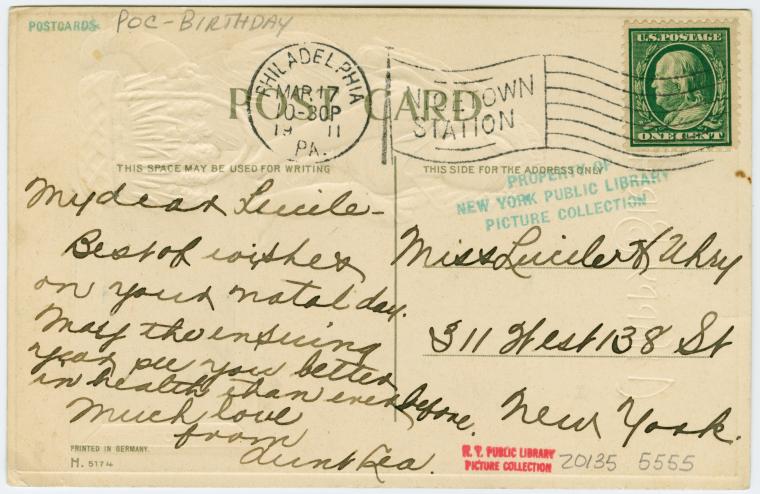 POSTCARDS
POC-BIRTHDAY
POST CARD
PHILADELPHIA
MAR 17
10-30P
19 11
PA.
NICETOWN
STATION
U.S. POSTAGE
ONE CENT
THIS SPACE MAY BE USED FOR WRITING
THIS SIDE FOR THE ADDRESS ONLY
PROPERTY OF
NEW YORK PUBLIC LIBRARY
PICTURE COLLECTION
My dear Lucile-
Best of wishes
on your natal day.
May the ensuing
year see you better
in health than ever before.
Much love
from
Aunt
Miss Lucile Uhry
311 West 138 St
New York.
PRINTED IN GERMANY.
H. 5174
N. Y. PUBLIC LIBRARY
PICTURE COLLECTION
20135 5555